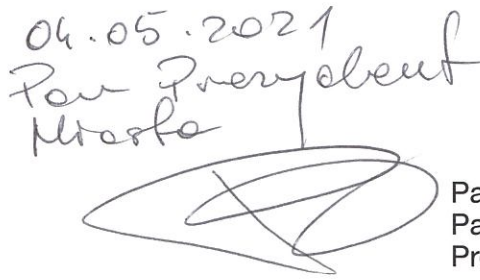 04.05.2021
Pan Prezydent
Miasta
Pa
Pa
Pr